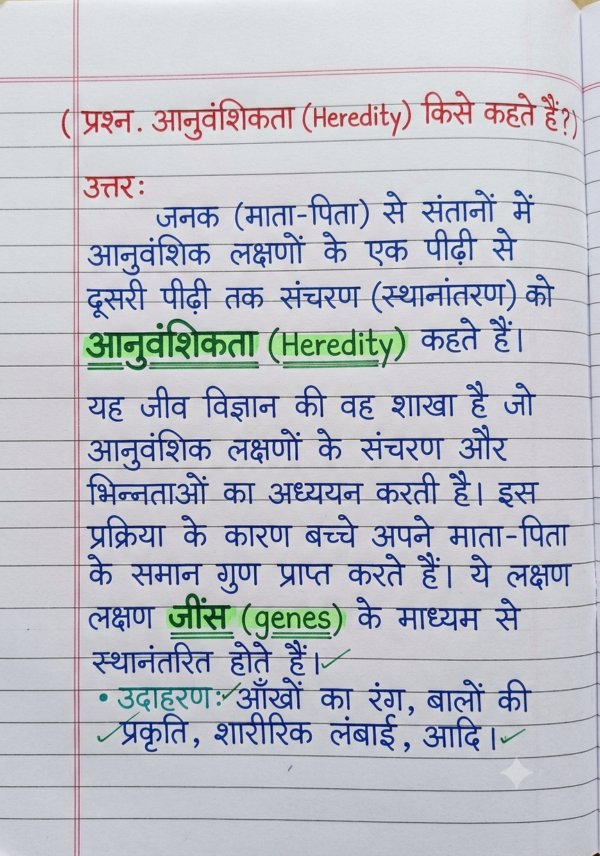 ( प्रश्न. आनुवंशिकता (Heredity) किसे कहते हैं?)
उत्तर:
जनक (माता-पिता) से संतानों में
आनुवंशिक लक्षणों के एक पीढ़ी से
दूसरी पीढ़ी तक संचरण (स्थानांतरण) को
आनुवंशिकता (Heredity) कहते हैं।
यह जीव विज्ञान की वह शाखा है जो
आनुवंशिक लक्षणों के संचरण और
भिन्नताओं का अध्ययन करती है। इस
प्रक्रिया के कारण बच्चे अपने माता-पिता
के समान गुण प्राप्त करते हैं। ये लक्षण
लक्षण जींस (genes) के माध्यम से
स्थानंतरित होते हैं।
• उदाहरण: आँखों का रंग, बालों की
प्रकृति, शारीरिक लंबाई, आदि।